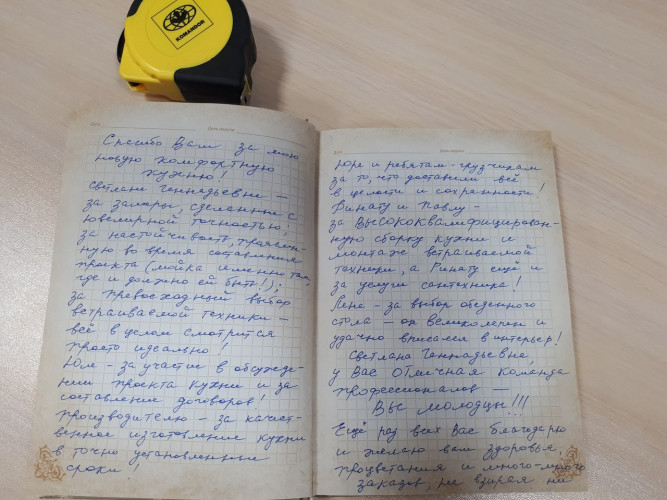 KOMANDOR
Спасибо Вам за мою
новую комфортную
кухню!
Светлане Геннадьевне —
за замеры, сделанные с
ювелирной точностью;
за настойчивость, проявлен-
ную во время составления
проекта (мойка именно там,
где и должно ей быть!);
за превосходный выбор
встраиваемой техники —
всё в целом смотрится
просто идеально!
Юле - за участие в обсужде-
нии проекта кухни и за
составление договоров!
производителю - за качест-
венное изготовление кухни
в точно установленные
сроки
Юре и ребятам-грузчикам
за то, что доставили всё
в целости и сохранности!
Ринату и Павлу -
за высококвалифицирован-
ную сборку кухни и
монтаж встраиваемой
техники, а Ринату ещё и
за услуги сантехника!
Лене - за выбор обеденного
стола - он великолепен и
удачно вписался в интерьер!
Светлана Геннадьевна,
у Вас отличная команда
профессионалов —
Вы молодцы!!!
Ещё раз всех Вас благодарю
и желаю вам здоровья
процветания и много-много
заказов, не взирая ни